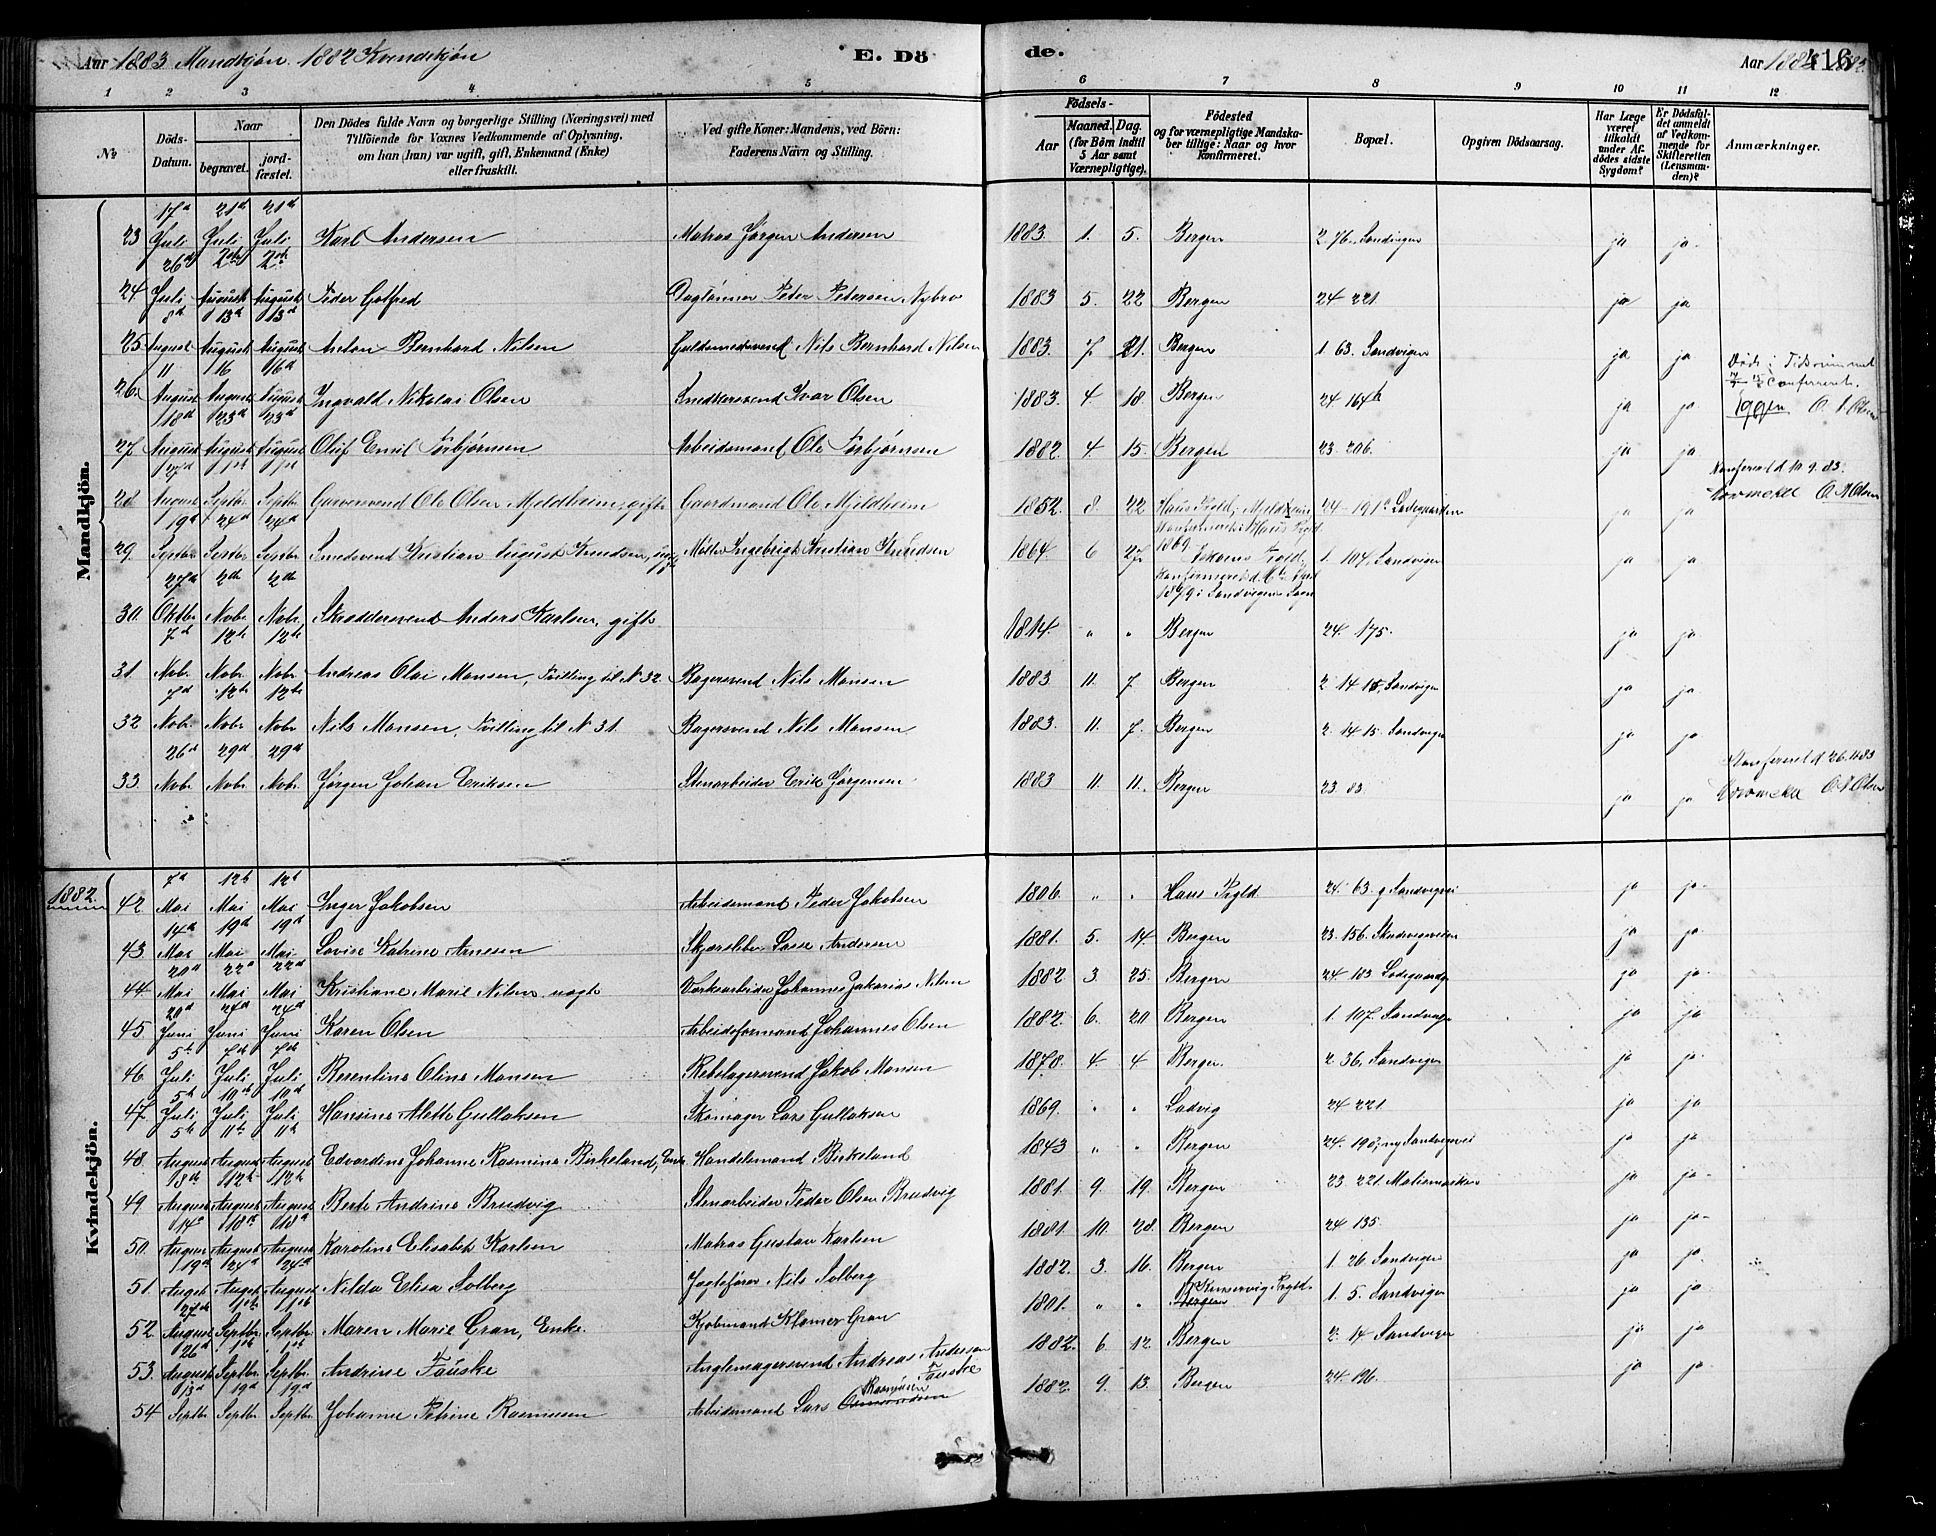 Aar 1883 Mandkjøn. 1882 Kvindekjøn E. Dö de. Aar 1883 416
1 2 3 4 5 6 7 8 9 10 11 12
No Döds-Datum. Naar begravet. jordfæstet. Den Dödes fulde Navn og borgerlige Stilling (Næringsvei) med Tilföiende for Voxnes Vedkommende af Oplysning, om han (hun) var ugift, gift, Enkemand (Enke) eller fraskilt. Ved gifte Koner: Mandens, ved Börn: Faderens Navn og Stilling. Födsels- Aar Maaned. Dag. (for Börn indtil 5 Aar samt Værnepligtige). Födested og for værnepligtige Mandskaber tillige: Naar og hvor konfirmeret. Bopæl. Opgiven Dödsaarsag. Har Læge været tilkaldt under Afdödes sidste Sygdom? Er Dödsfaldet anmeldt af Vedkommende for Skifteretten (Lensmanden)? Anmærkninger.
Mandkjön.
23 17d Juli 21d Juli 21d Juli Karl Andersen Matros Jørgen Andersen 1883. 1. 5. Bergen 2. 76, Sandvigen ja ja
24 26d Juli 2den August 2den August Peder Gotfred Daglønner Peter Petersen Nybro 1883 5. 22 Bergen 24 221. ja ja
25 8d August 13d August 13d August Anton Bernhard Nilsen Guldsmedsvend Nils Bernhard Nilsen 1883. 7 21. Bergen 1. 63. Sandvigen ja ja
26. 11 August 16 August 16d August Ingvald Nikolai Olsen Snedkersvend Ivar Olsen 1883. 4 18 Bergen 24. 164b ja ja O. A. Olsen
27. 18d August 23d August 23d August Oluf Emil Torbjørnsen Arbeidsmand Ole Torbjørnsen 1882. 4. 15. Bergen 23. 206. ja ja
28. 27d August 1st Septbr 1st Septbr Garversvend Ole Olsen Mjeldheim, gift Gaardmand Ole Mjeldheim 1852. 8 22 Haus Prgld, Mjeldheim Konfirmeret i Haus Prgld 1869. 24 191a Ladegaarden ja ja Konfereret d. 10.9.83. O A Olsen
29. 19d Septbr 24d Septbr 24d Septbr Smedsvend Kristian August Knudsen, ugift Møller Ingebrigt Kristian Knudsen 1864. 6 27 1879 i Sandvigens Sogn 1. 104, Sandvigen ja ja
30. 27d Oktbr 2d Nobr. 2d Nobr. Skræddersvend Anders Karlsen, gift 1814. " " Bergen 24. 175. ja ja
31. 7d Nobr. 12te Nobr. 12te Nobr. Andreas Olai Monsen, Tvilling til N 32. Bagersvend Nils Monsen 1883 11. 7 Bergen 2. 14 15, Sandvigen ja ja
32 7d Nobr. 12te Nobr 12te Nobr Nils Monsen, Tvilling til N 31. Bagersvend Nils Monsen 1883. 11. 7. Bergen 2. 14 15. Sandvigen ja ja
33. 26d Nobr. 29d Nobr. 29d Nobr. Jørgen Johan Eriksen Stenarbeider Erik Jørgensen 1883 11. 11. Bergen 23. 83. ja ja Konfereret d 26.11.83 O A Olsen
Kvindekjön.
1882.
42. 7d Mai 12te Mai 12te Mai Inger Jakobsen Arbeidsmand Peder Jakobsen 1806. " " Haus Prgld 24. 63. g Sandvigsvei ja ja
43. 14d Mai 19d Mai 19d Mai Lovise Katrine Arnesen Lasse Andersen 1881. 5. 14 Bergen 23. 156. ja ja
44 20d Mai 22d Mai 22d Mai Kristiane Marie Nilsen uægte Værksarbeider Johannes Zakarias Nilsen 1882 3. 25. Bergen 24 183 Ladegaarden ja ja
45. 20d Juni 24d Juni 24d Juni Karen Olsen Arbeidsformand Johannes Olsen 1882. 6. 20 Bergen 1. 107. Sandvigen ja ja
46. 5te Juli 7d Juli 7d Juli Resentine Oline Monsen Rebslagersvend Jakob Monsen 1878. 4. 4 Bergen. 2. 36, Sandvigen ja ja
47. 5te Juli 10de Juli 10d Juli Hansine Alette Gullaksen Skomager Lars Gullaksen 1869. " " Ladvig 24 221 ja ja
48. 5te August 11te August 11te August Edvardine Johanne Rasmine Birkeland, Enke Handelsmand Birkeland 1843 " " Bergen 24. 190, ny Sandvigsvei ja ja
49 8d August 12te August 12te August Berte Andrine Brudvig Stenarbeider Peder Olsen Brudvig 1881. 9. 19. Bergen 23. 221. ja ja
50. 14d August 18d August 18d August Karoline Elisabet Karlsen Matros Gustav Karlsen 1881. 10. 28. Bergen 24 135. ja ja
51. 19d August 24d August 24d August Nilda Elisa Solberg Jagtefører Nils Solberg 1882. 3. 16. Bergen 1. 26. Sandvigen ja ja
52. 27d August 1ste Septbr. 1ste Septbr. Maren Marie Gran, Enke. Kjøbmand Klamer Gran 1801. " " Kinservig Prgld. Bergen 1. 5. Sandvigen ja ja
53. 26d August 1ste Septbr. 1ste Septbr. Andrine Fauske Andreas Andersen Fauske 1882. 6. 12. Bergen 2. 14 Sandvigen ja ja
54 13d Septbr. 19d Septbr. 19d Septbr. Johanne Petrine Rasmussen Arbeidsmand Lars Rasmussen 1882. 9. 13. Bergen 24. 196. ja ja